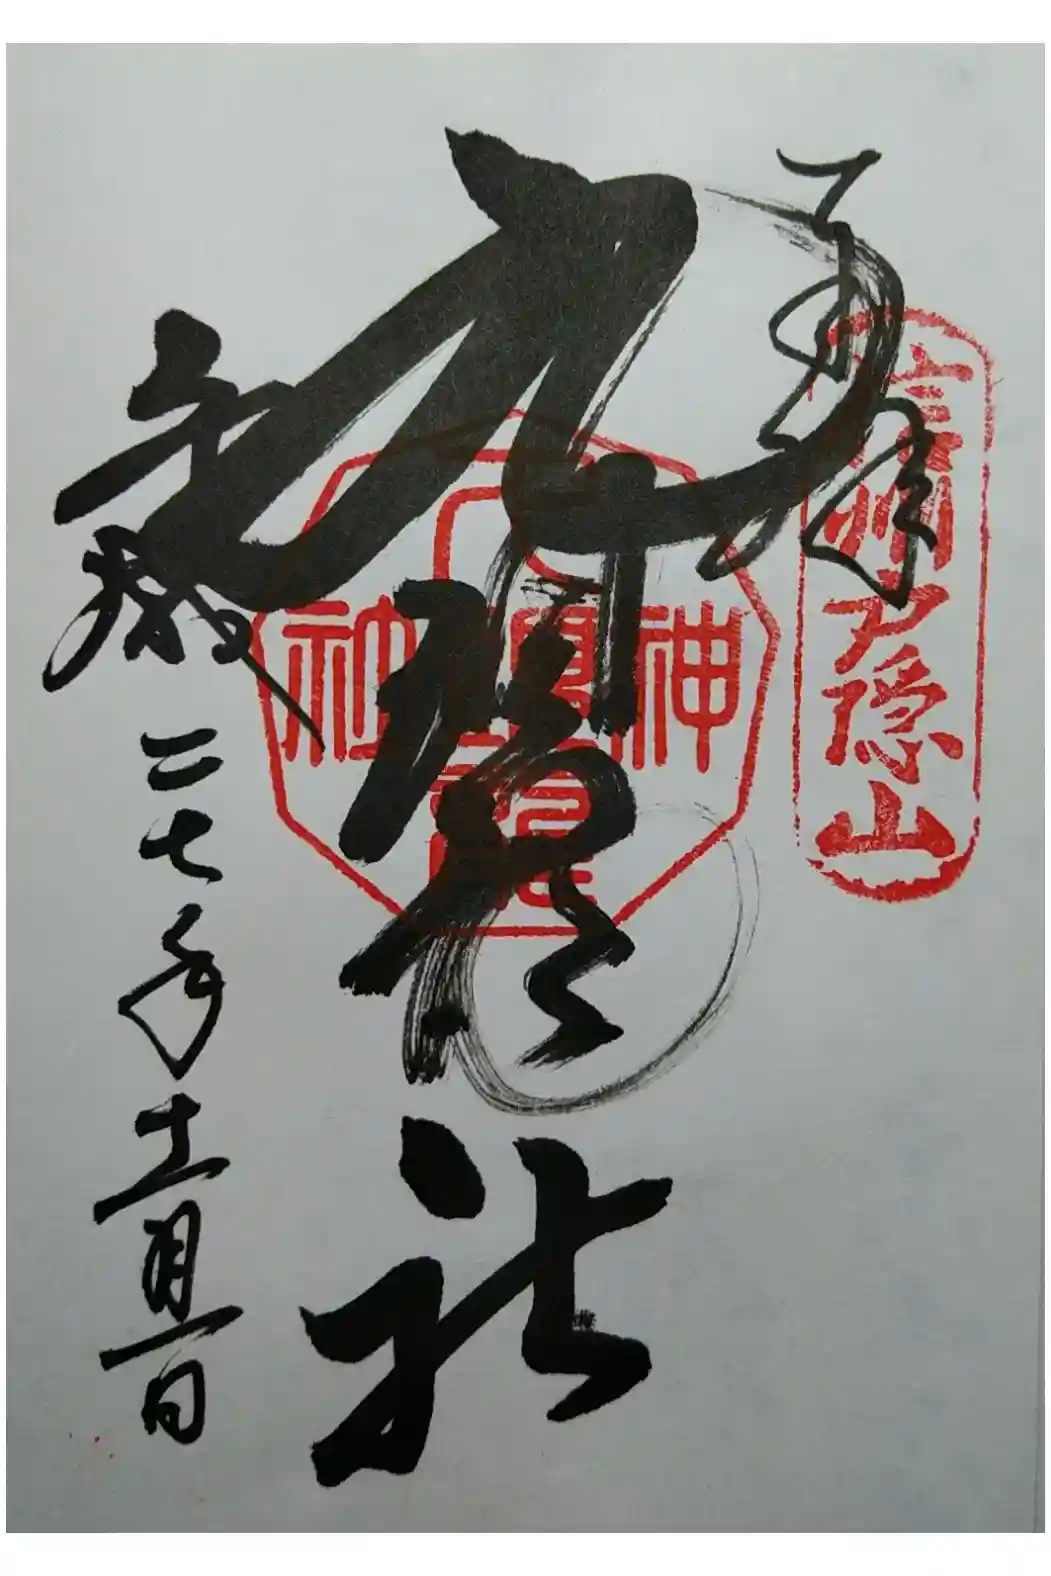 奉拝
信州戸隠山
九頭龍社
九頭龍神社
平成二七年十一月一日